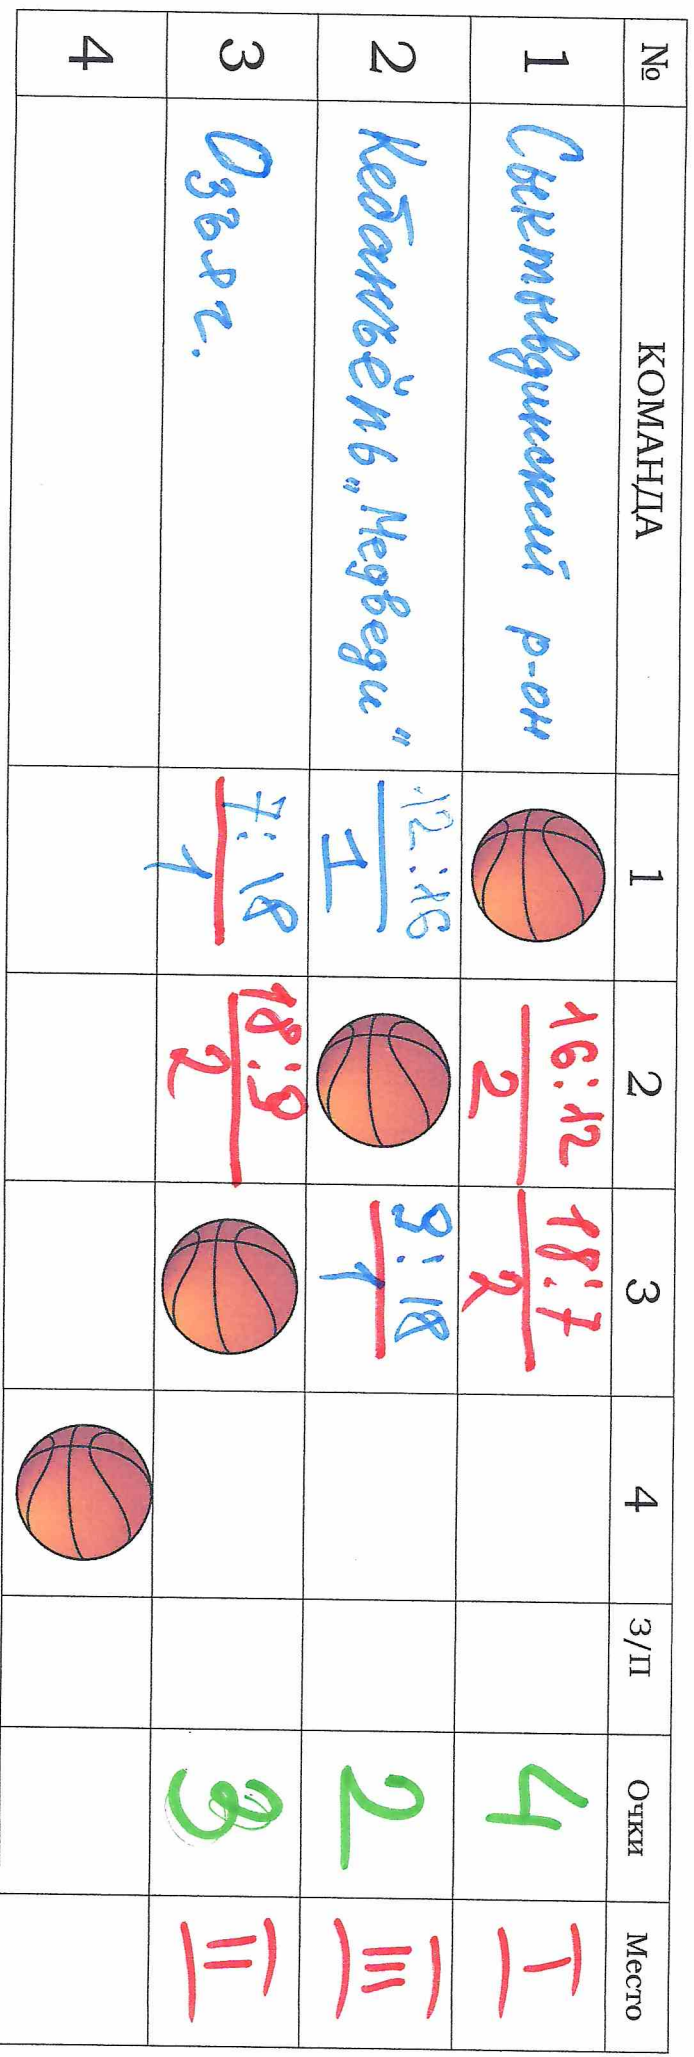 № КОМАНДА 1 2 3 4 З/П Очки Место
1 Сыктывдинский р-он 16:12 18:7 4 I
2 2
2 Кебанъёль „Медведи" 12:16 9:18 2 III
1 1
3 Озъяг. 7:18 18:9 3 II
1 2
4